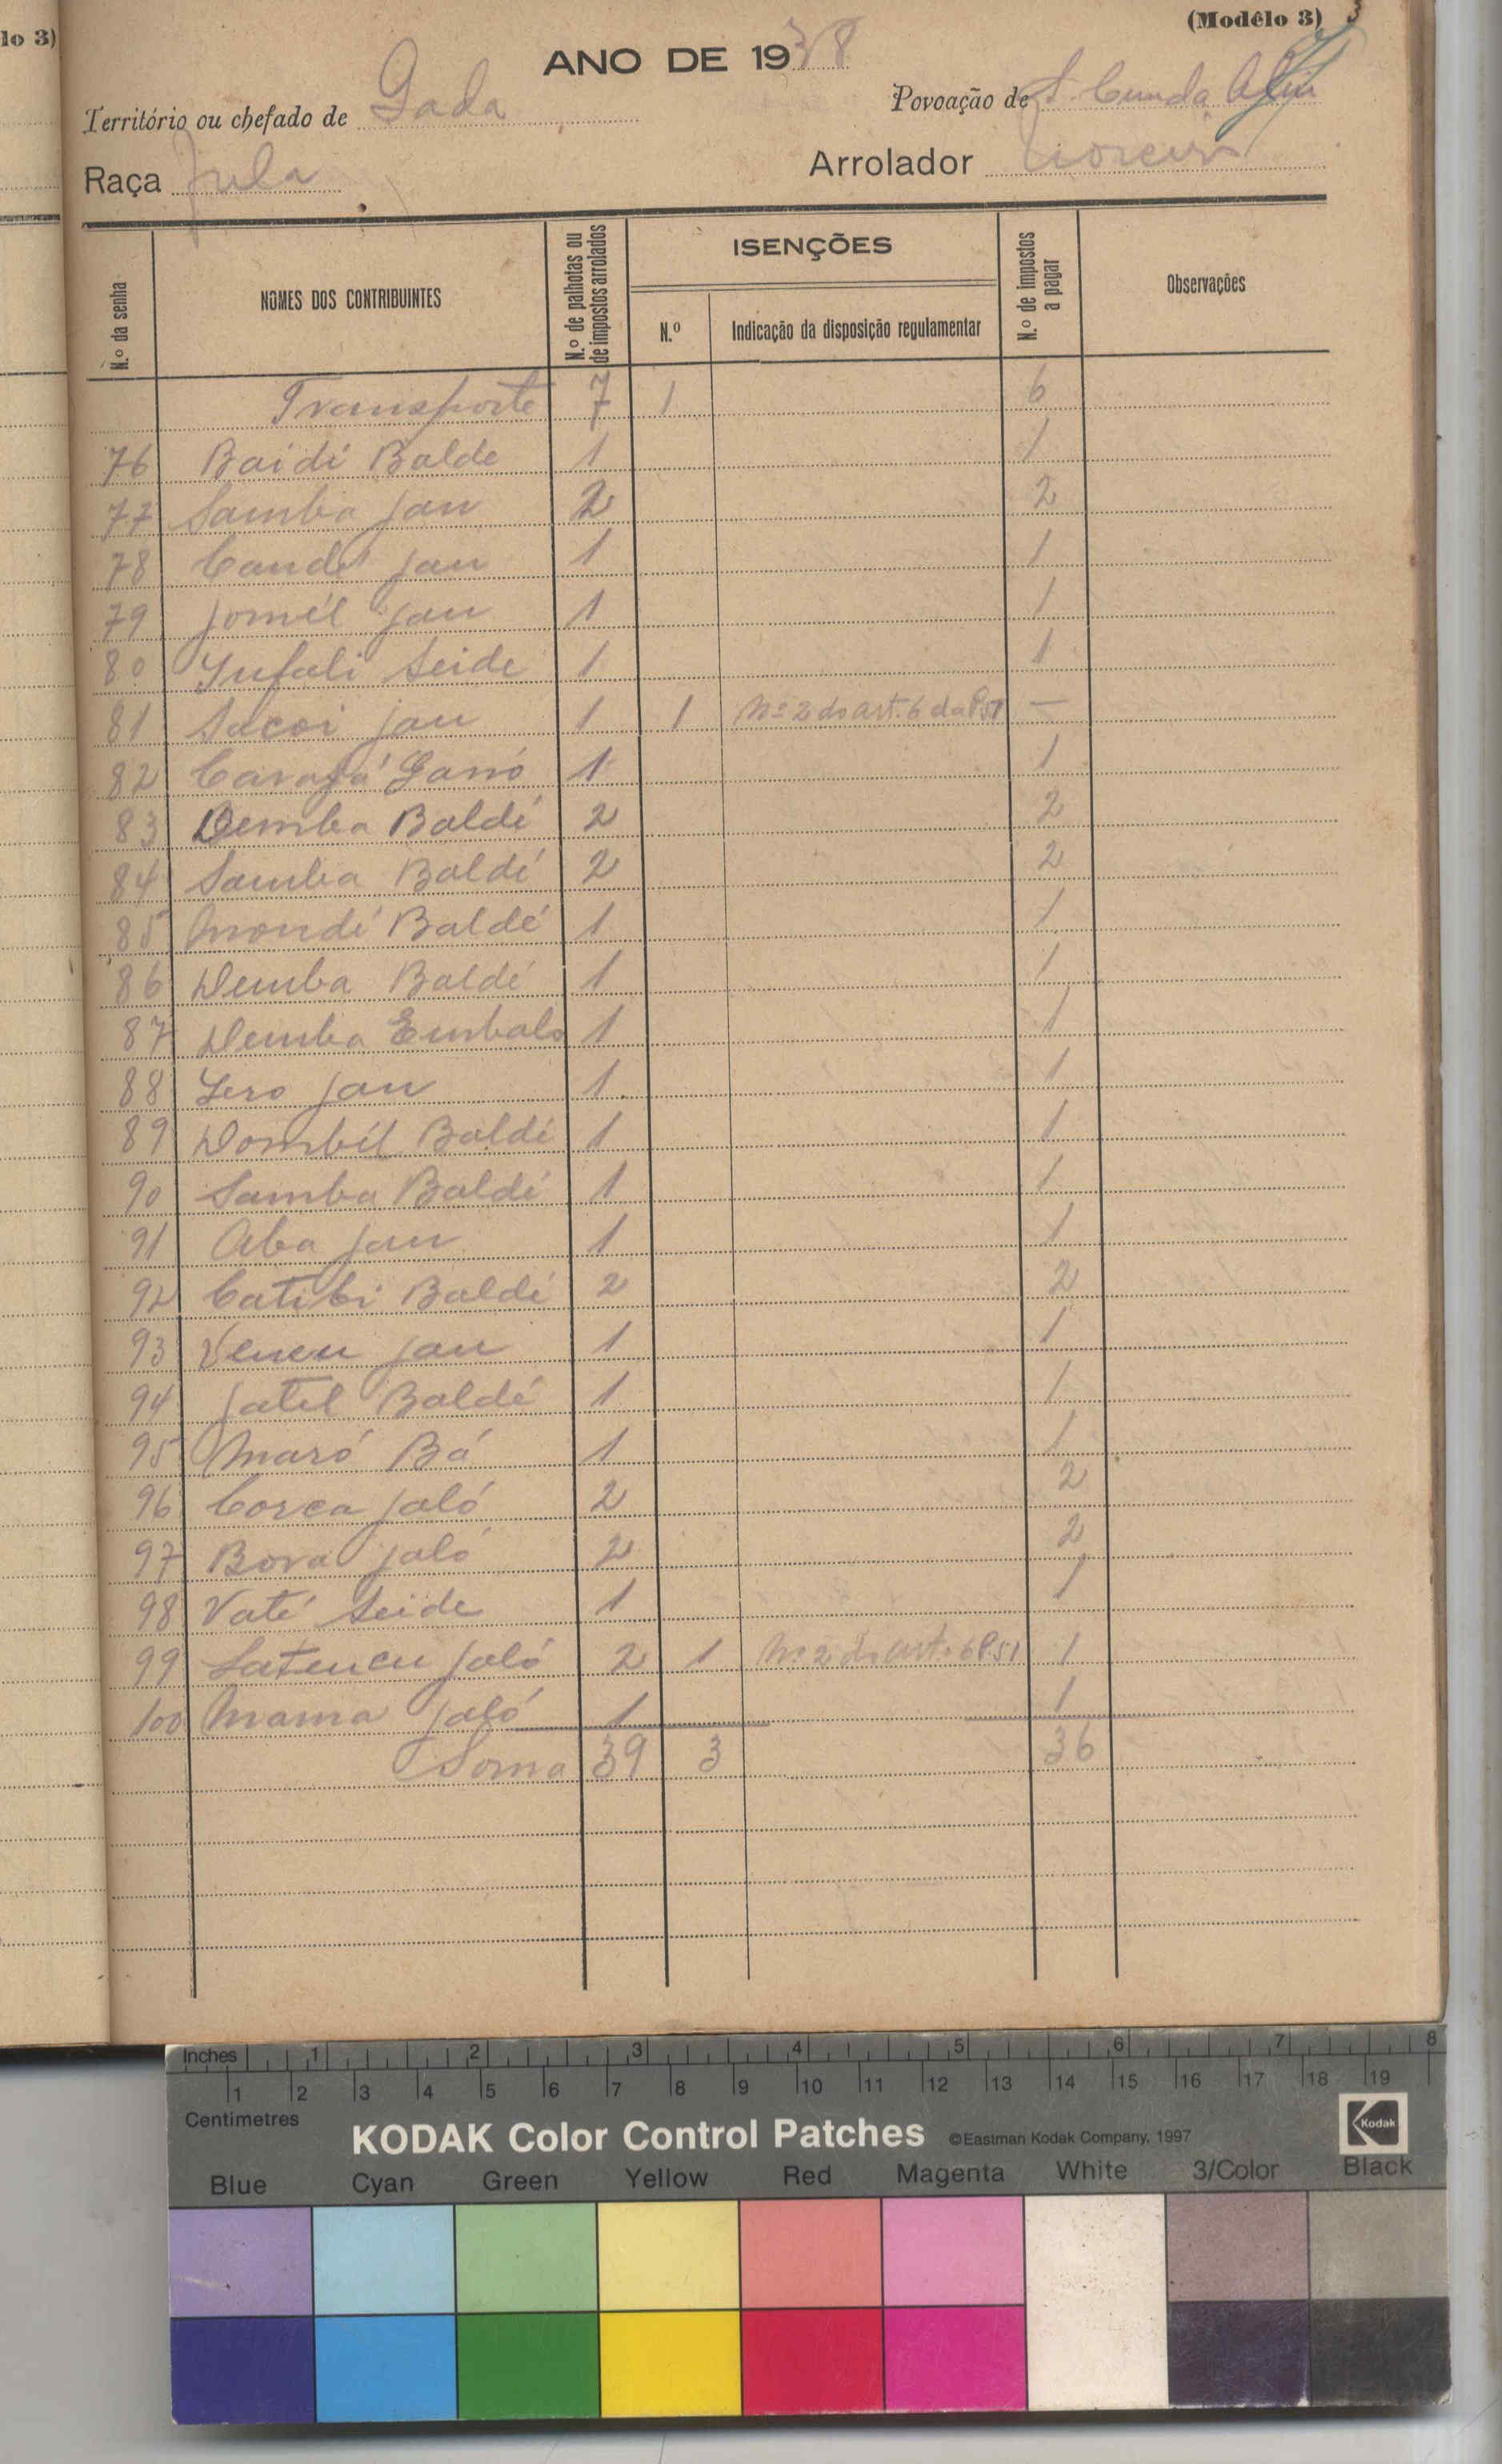 lo 3)
(Modêlo 3) 3
ANO DE 1938
Território ou chefado de Gada
Povoação de S. Cunda
Raça Fula
Arrolador
N.º da senha
NOMES DOS CONTRIBUINTES
N.º de palhotas ou de impostos arrolados
ISENÇÕES
N.º
Indicação da disposição regulamentar
N.º de impostos a pagar
Observações
Transporte 7 1 6
76 Baidi Balde 1 1
77 Samba Jau 2 2
78 Candé Jau 1 1
79 Jomél Jau 1 1
80 Jufali Seide 1 1
81 Sacoi Jau 1 1 Nº 2 do art. 6 da P51 —
82 Ganó 1 1
83 Demba Baldé 2 2
84 Samba Baldé 2 2
85 Baldé 1 1
86 Demba Baldé 1 1
87 Demba Embalo 1 1
88 Iero Jau 1 1
89 Dombél Baldé 1 1
90 Samba Baldé 1 1
91 Aba Jau 1 1
92 Catibi Baldé 2 2
93 Jau 1 1
94 Jatel Baldé 1 1
95 Maró Bá 1 1
96 Corca Jaló 2 2
97 Bora Jaló 2 2
98 Vaté Seide 1 1
99 Satencu Jaló 2 1 Nº 2 do art. 6 P51 1
100 Mama Jaló 1 1
Soma 39 3 36
Inches 1 2 3 4 5 6 7 8
1 2 3 4 5 6 7 8 9 10 11 12 13 14 15 16 17 18 19
Centimetres
KODAK Color Control Patches ©Eastman Kodak Company, 1997 Kodak
Blue Cyan Green Yellow Red Magenta White 3/Color Black